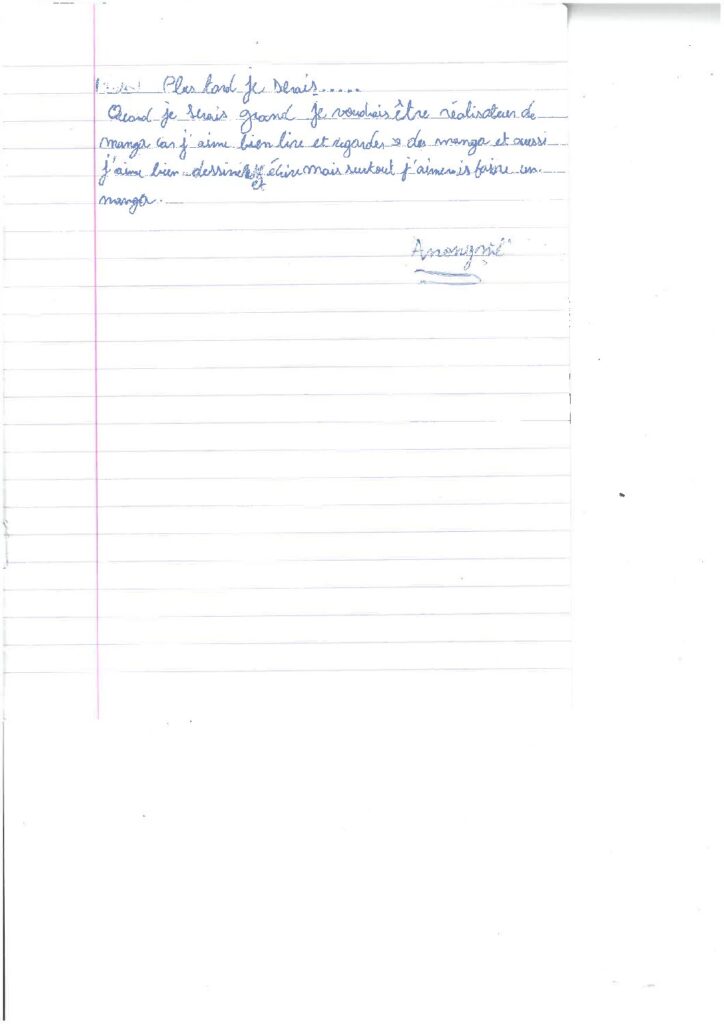 Plus tard je serais.....
Quand je serais grand je voudrais être réalisateur de
manga car j'aime bien lire et regarder des manga et aussi
j'aime bien dessiner et écrire mais surtout j'aimerais faire un
manga.
Anonyme